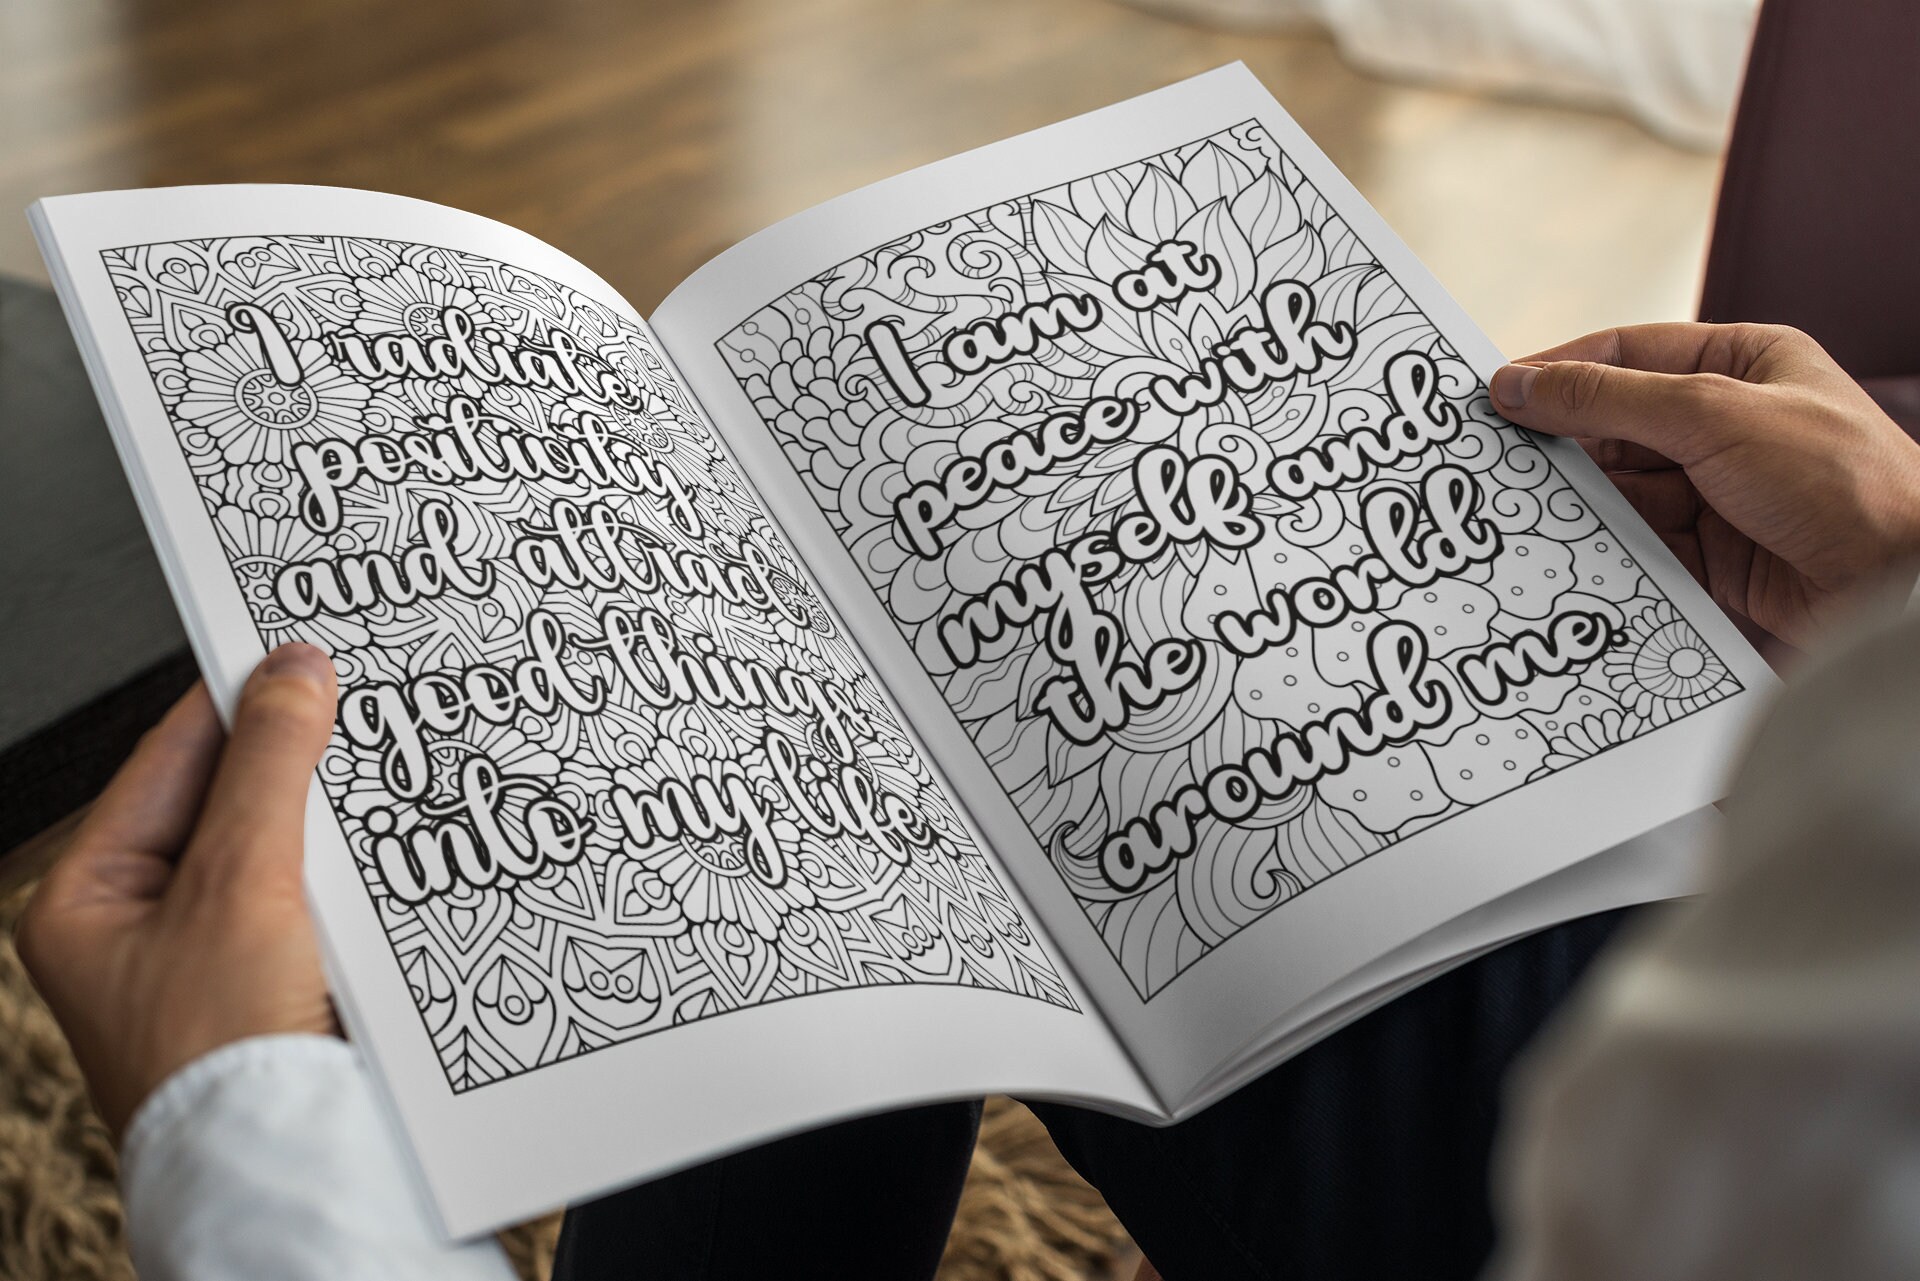 I radiate
positivity
and attract
good things
into my life.
I am at
peace with
myself and
the world
around me.